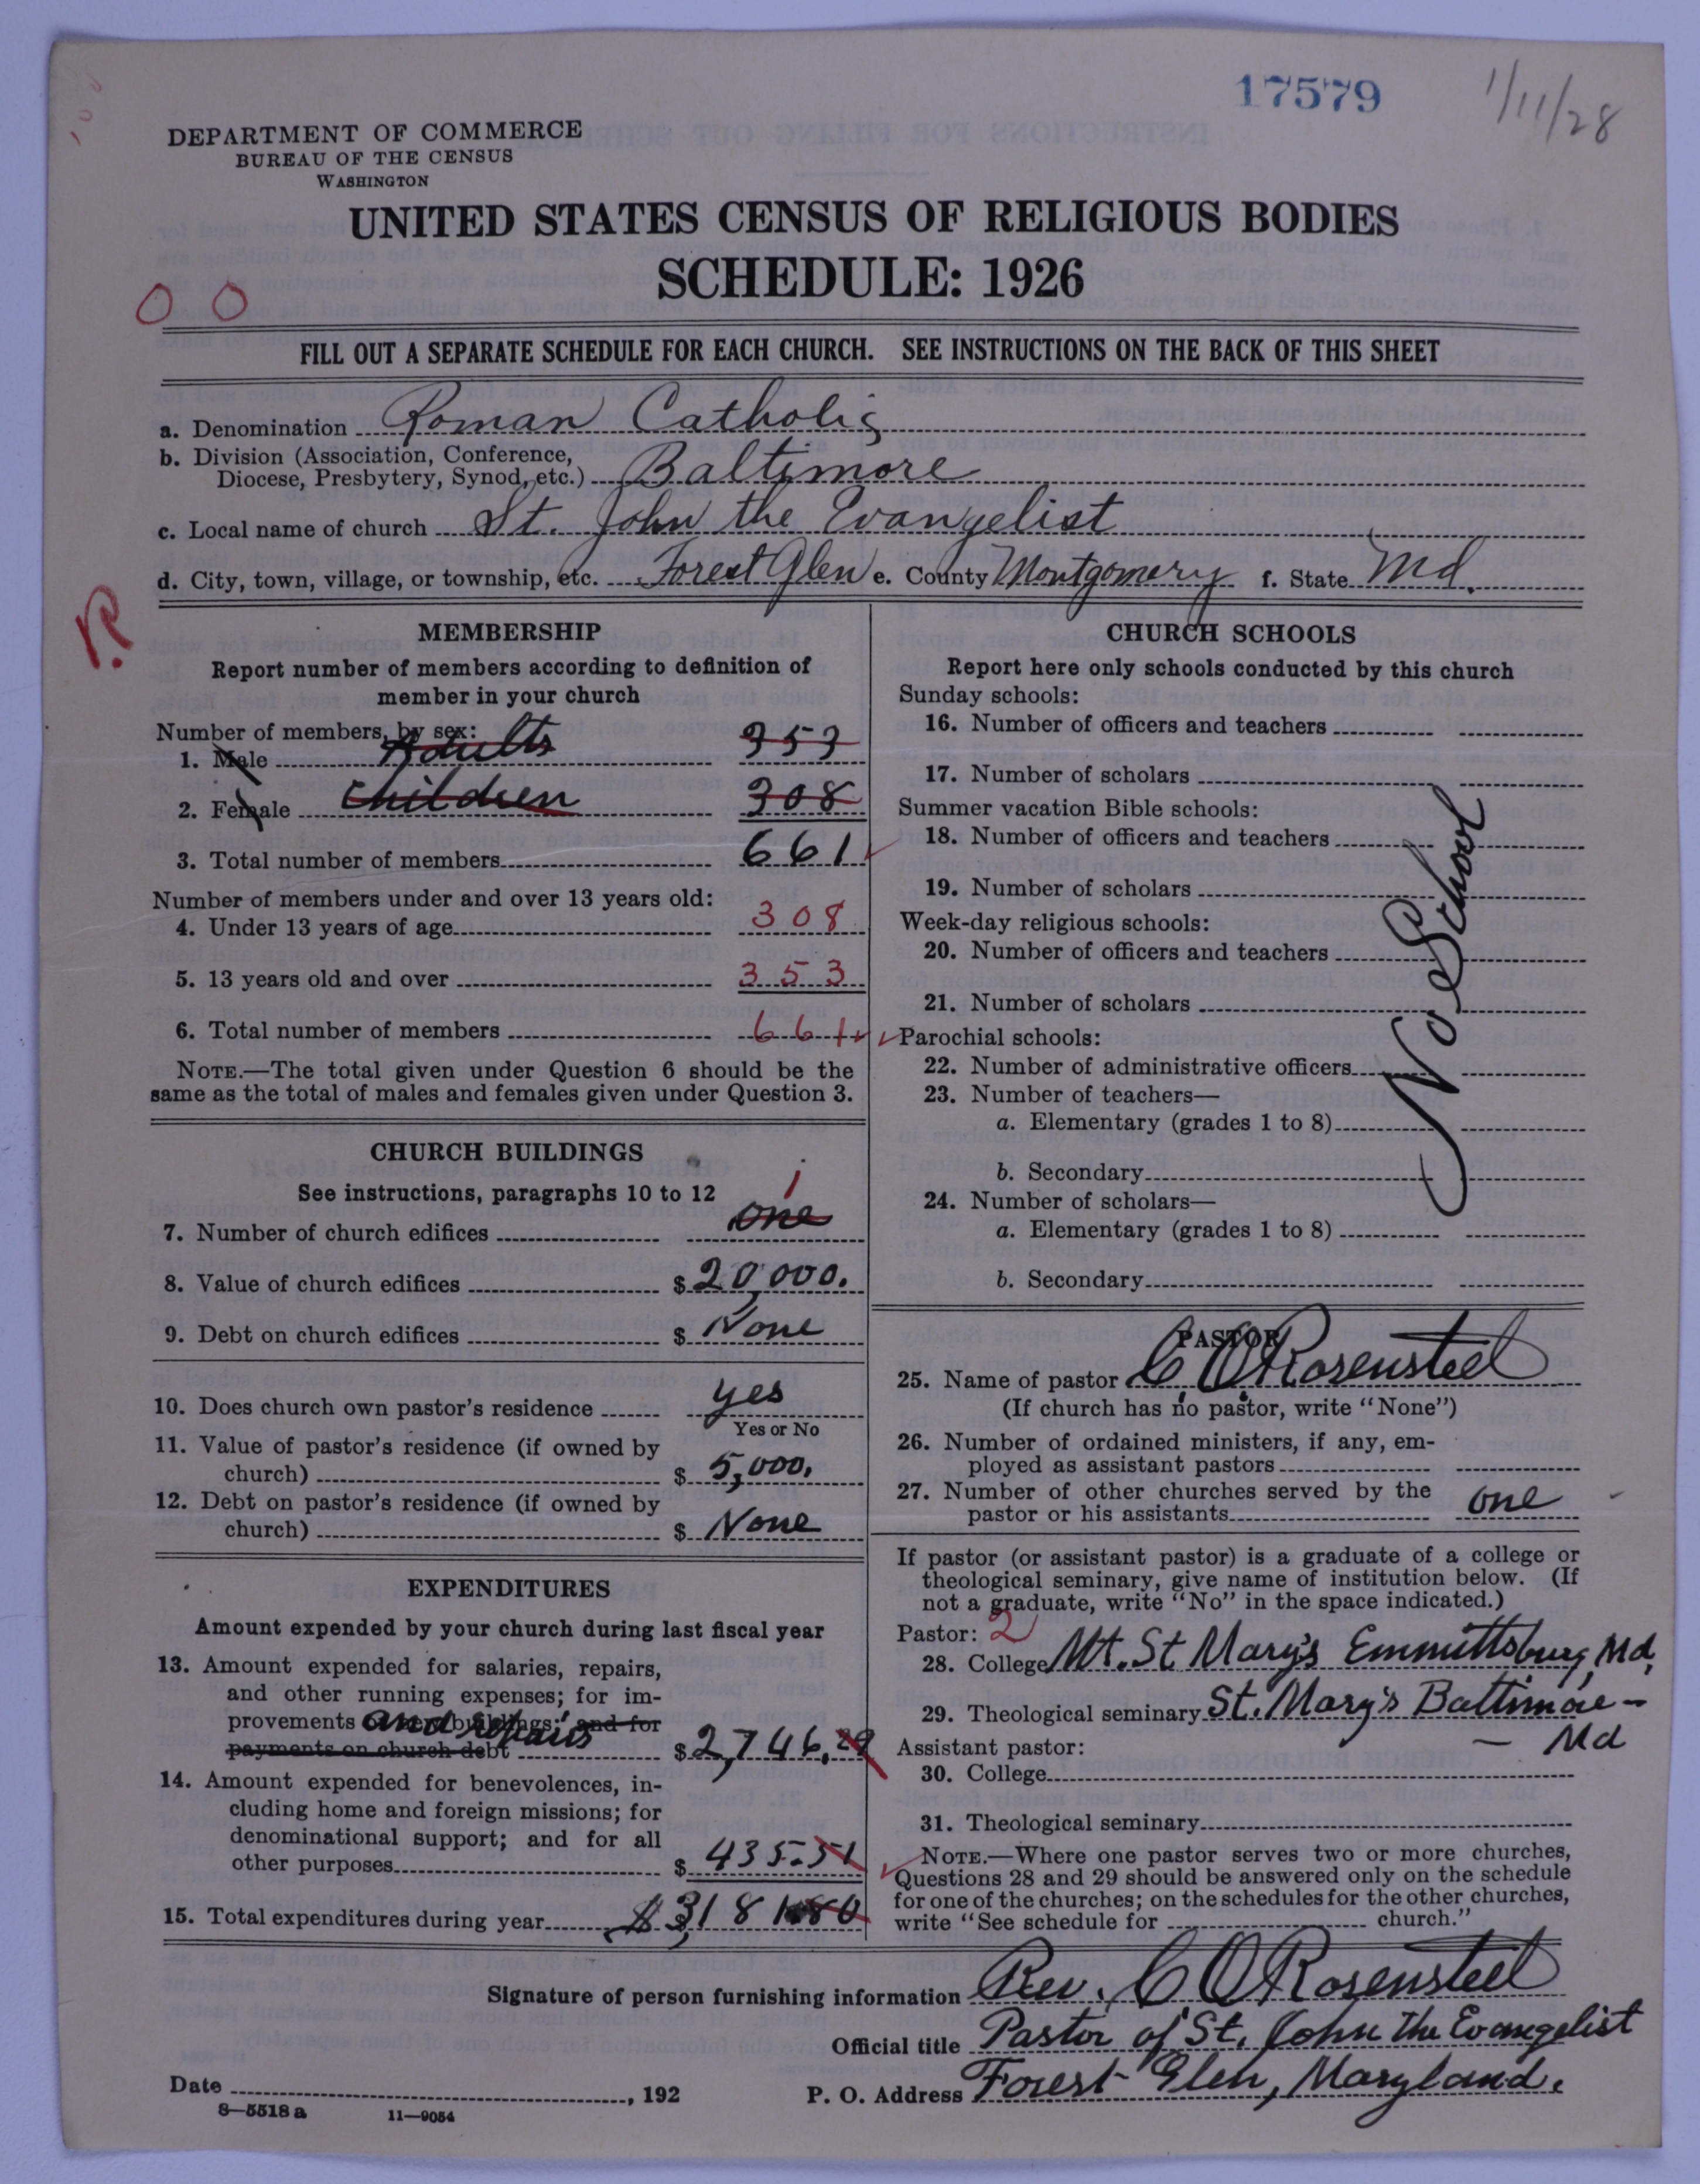 17579
1/11/28
DEPARTMENT OF COMMERCE
BUREAU OF THE CENSUS
WASHINGTON
UNITED STATES CENSUS OF RELIGIOUS BODIES
SCHEDULE: 1926
0 0
FILL OUT A SEPARATE SCHEDULE FOR EACH CHURCH. SEE INSTRUCTIONS ON THE BACK OF THIS SHEET
a. Denomination Roman Catholic
b. Division (Association, Conference,
Diocese, Presbytery, Synod, etc.) Baltimore
c. Local name of church St. John the Evangelist
d. City, town, village, or township, etc. Forest Glen e. County Montgomery f. State Md.
R.
MEMBERSHIP
Report number of members according to definition of
member in your church
Number of members, by sex:
1. Male Adults 353
2. Female Children 308
3. Total number of members 661
Number of members under and over 13 years old:
4. Under 13 years of age 308
5. 13 years old and over 353
6. Total number of members 661
NOTE.—The total given under Question 6 should be the
same as the total of males and females given under Question 3.
CHURCH BUILDINGS
See instructions, paragraphs 10 to 12
1
7. Number of church edifices one
8. Value of church edifices $20,000.
9. Debt on church edifices $ None
10. Does church own pastor's residence yes
Yes or No
11. Value of pastor's residence (if owned by
church) $ 5,000.
12. Debt on pastor's residence (if owned by
church) $ None
EXPENDITURES
Amount expended by your church during last fiscal year
13. Amount expended for salaries, repairs,
and other running expenses; for im-
provements and repairs buildings; and for
payments on church debt $2,746.29
14. Amount expended for benevolences, in-
cluding home and foreign missions; for
denominational support; and for all
other purposes $ 435.51
15. Total expenditures during year $3,181.80
CHURCH SCHOOLS
Report here only schools conducted by this church
Sunday schools:
16. Number of officers and teachers
17. Number of scholars
Summer vacation Bible schools:
18. Number of officers and teachers
19. Number of scholars
Week-day religious schools:
20. Number of officers and teachers
21. Number of scholars
Parochial schools:
22. Number of administrative officers
23. Number of teachers—
a. Elementary (grades 1 to 8)
b. Secondary
24. Number of scholars—
a. Elementary (grades 1 to 8)
b. Secondary
No School
PASTOR
25. Name of pastor C. O. Rosensteel
(If church has no pastor, write "None")
26. Number of ordained ministers, if any, em-
ployed as assistant pastors
27. Number of other churches served by the
pastor or his assistants one
If pastor (or assistant pastor) is a graduate of a college or
theological seminary, give name of institution below. (If
not a graduate, write "No" in the space indicated.)
Pastor: 2
28. College Mt. St Mary's Emmittsburg, Md,
29. Theological seminary St. Mary's Baltimore –
– Md
Assistant pastor:
30. College
31. Theological seminary
NOTE.—Where one pastor serves two or more churches,
Questions 28 and 29 should be answered only on the schedule
for one of the churches; on the schedules for the other churches,
write "See schedule for church."
Signature of person furnishing information Rev. C O Rosensteel
Official title Pastor of St. John the Evangelist
Date , 192
P. O. Address Forest Glen, Maryland.
8—5518 a 11—9054